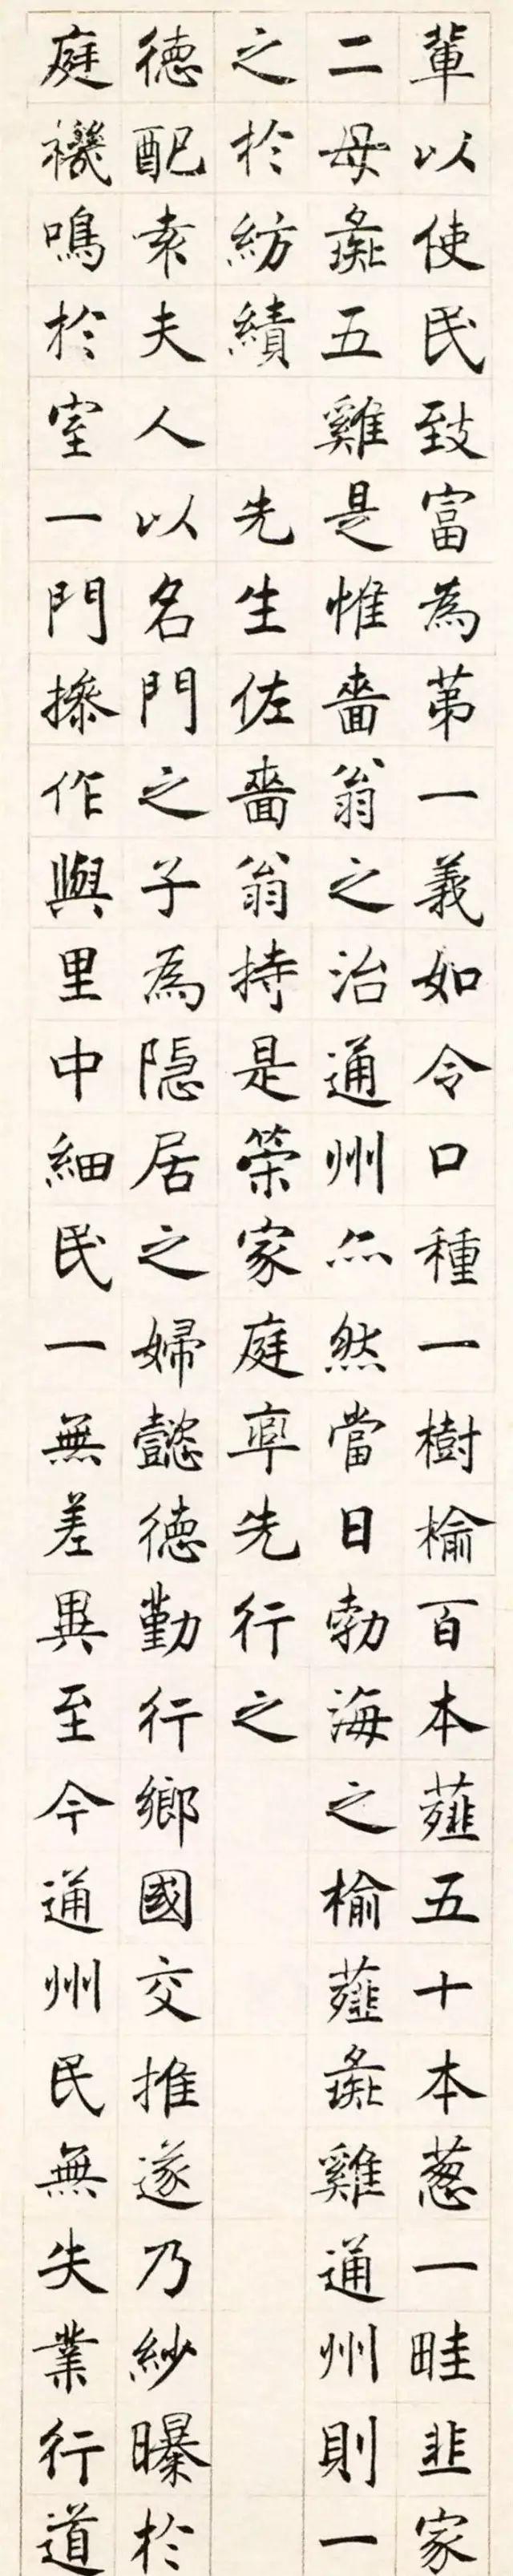 輩以使民致富為苐一義如令口種一樹榆百本薤五十本蔥一畦韭家
二母彘五雞是惟嗇翁之治通州亦然當日勃海之榆薤彘雞通州則一
之於紡績 先生佐嗇翁持是榮家庭率先行之
德配袁夫人以名門之子為隱居之婦懿德勤行鄉國交推遂乃紗曝於
庭機鳴於室一門操作與里中細民一無差異至今通州民無失業行道